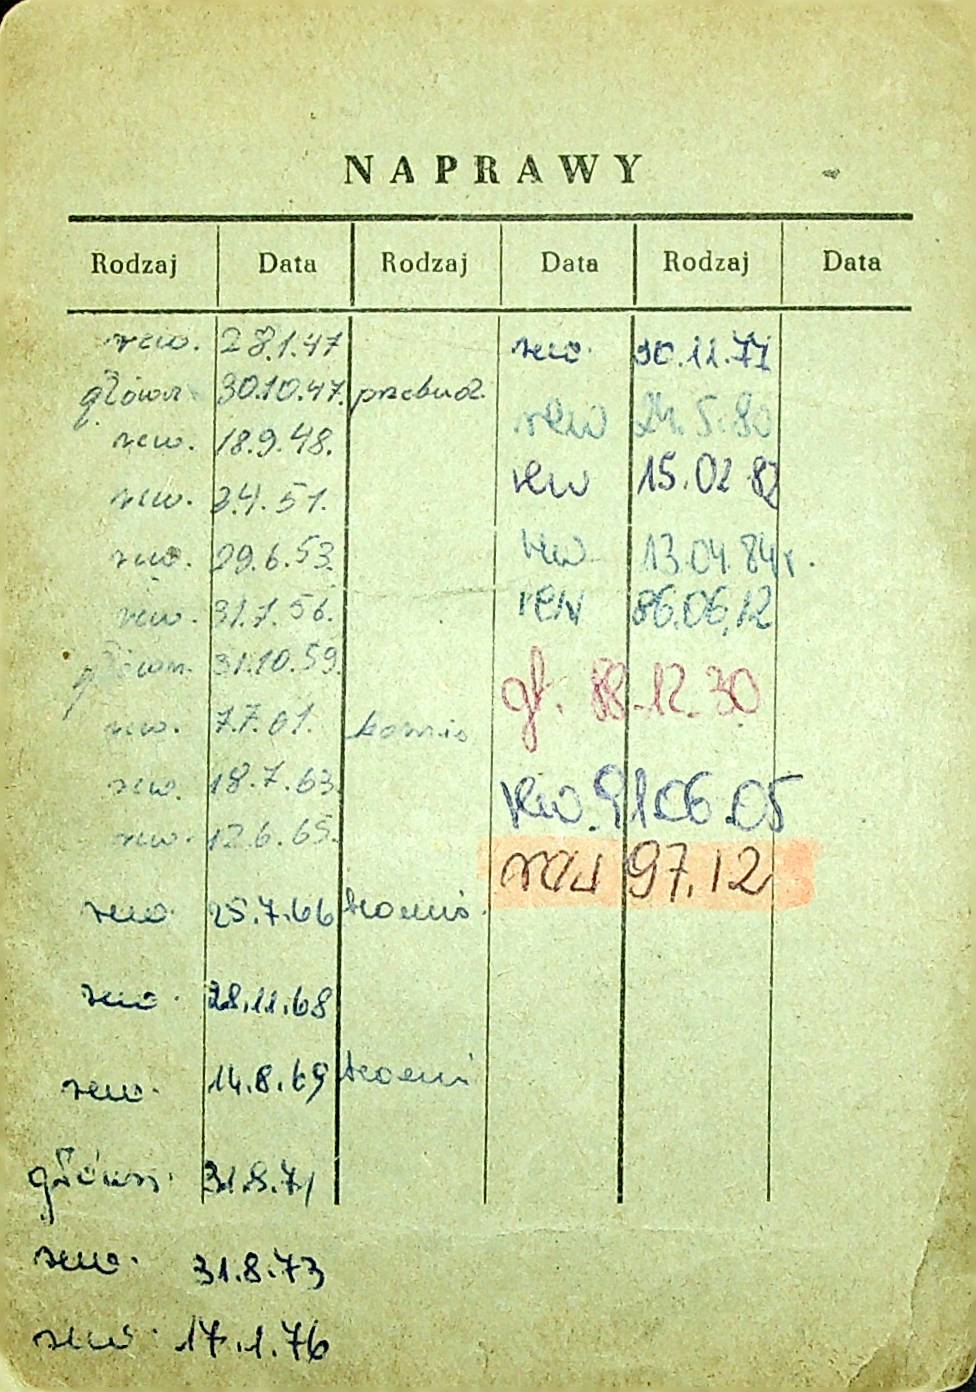 NAPRAWY
Rodzaj Data Rodzaj Data Rodzaj Data
rew. 28.1.47
główn. 30.10.47. przebud.
rew. 18.9.48.
rew. 2.4.51.
rew. 29.6.53.
rew. 31.7.56.
główn. 31.10.59.
rew. 7.7.61.
rew. 18.7.63.
rew. 12.6.65.
rew. 25.7.66
rew. 28.11.68
rew. 14.8.69
główn. 31.8.71
rew. 31.8.73
rew. 17.1.76
rew. 30.11.77
rew 24.5.80
rew 15.02 82
rew 13.04.84r.
rew 86.06.12
gł. 88.12.30
rew. 91.06.05
rew 97.12